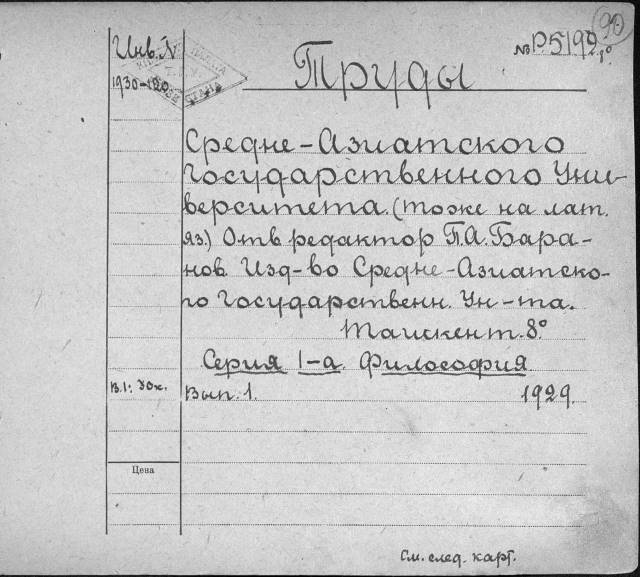 90
Инв. №
№ Р.5192 1°
Труды
1930-
Средне-Азиатского
Государственного Уни-
верситета. (тоже на лат.
яз.) Отв редактор П.А. Бара-
нов. Изд-во Средне-Азиатско-
го Государственн. Ун-та.
Ташкент. 8°
Серия 1-а. Философия
В.1: 30к. Вып. 1. 1929.
Цена
См. след. карт.